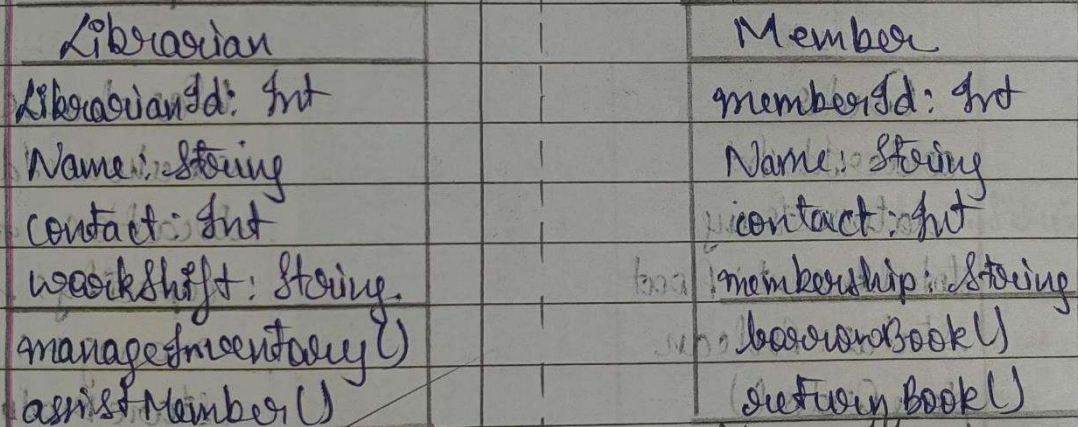 Librarian
LibrarianId: Int
Name: String
contact: Int
workShift: String.
manageInventory()
assistMember()
Member
memberId: Int
Name: String
contact: Int
membership: String
borrowBook()
return Book()